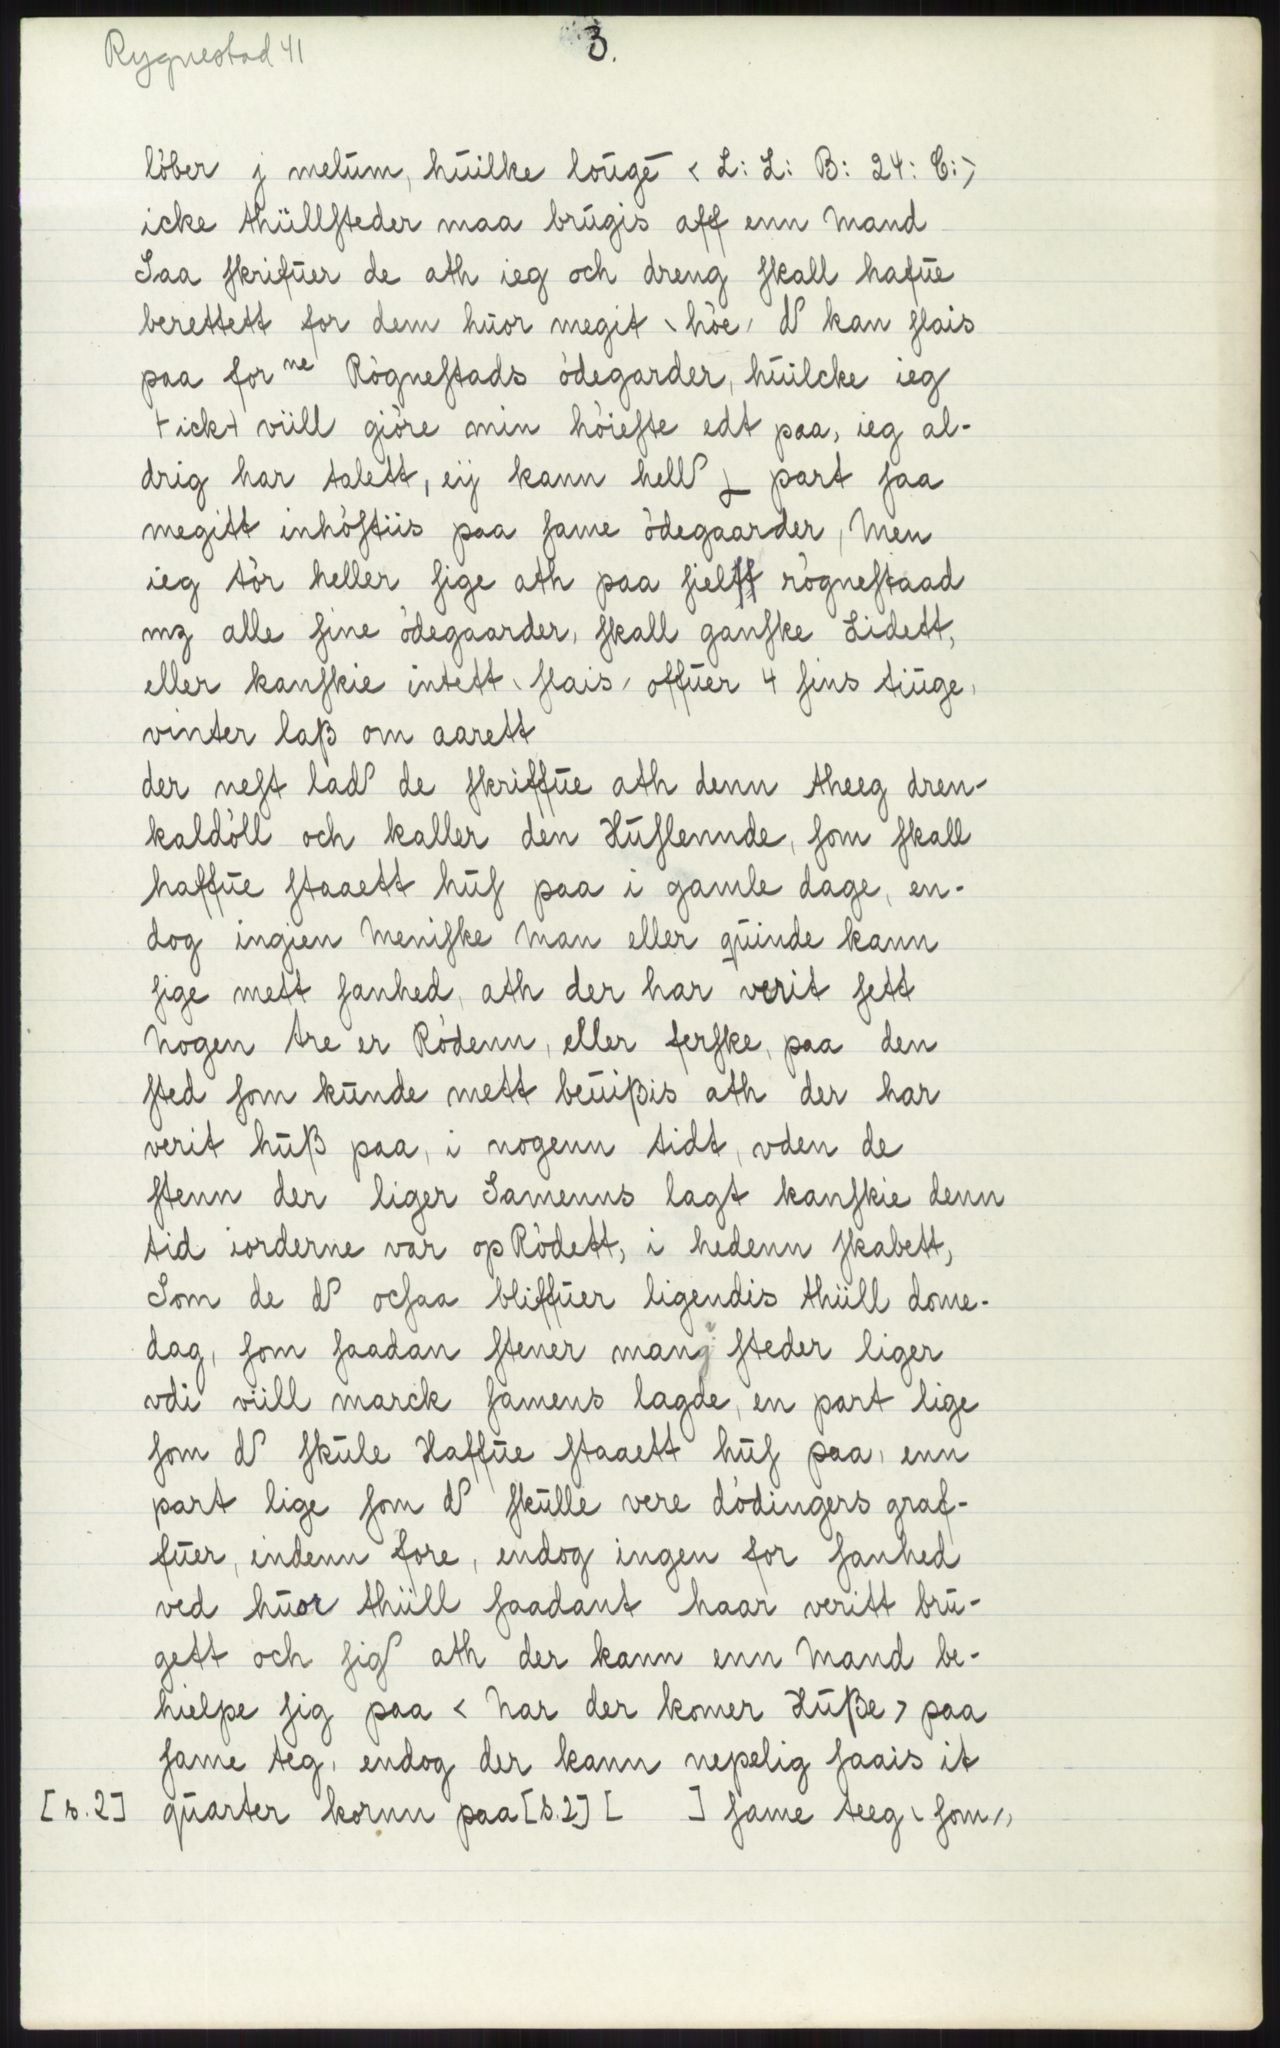 Rygnestad 41
3.
løber j melum, huilke lougē < L: L: B: 24: C: >
icke thüllſteder maa brugis aff enn Mand
Saa ſkrifuer de ath ieg och dreng ſkall hafue
berettett for dem huor megit \ høe / d kan ſlais
paa for ne Røgneſtads ødegarder, huilcke ieg
+ ick+ viill giøre min høieſte edt paa, ieg al-
drig har talett, eij kann hell part ſaa
megitt inhøſtiis paa ſame ødegaarder, Men
ieg tør heller ſige ath paa ſielff røgneſtaad
mz alle ſine ødegaarder, ſkall ganſke Lidett,
eller kanſkie intett \ ſlais / offuer 4 ſins tiuge,
vinter laß om aarett
der neſt lad de ſkriffue ath denn theeg dren-
kaldøll och kaller den Huſlennde, ſom ſkall
haffue ſtaaett huſ paa i gamle dage, en-
dog ingien Meniſke Man eller quinde kann
ſige mett ſanhed, ath der har verit ſett
Nogen tre er Rødenn, eller ferſke, paa den
ſted ſom kunde mett beuißis ath der har
verit huß paa, i nogenn tidt, vden de
ſtenn der liger Samenns lagt kanſkie denn
tid iorderne var op Rødett, i hedenn ſkabett,
Som de d ocſaa bliffuer ligendis thüll dome-
dag, ſom ſaadan ſtener mang ſteder liger
vdi viill marck ſamens lagde, en part lige
ſom d ſkule Haffue ſtaaett huſ paa, enn
part lige ſom d ſkulle vere dødingers graf-
fuer, indenn fore, endog ingen for ſanhed
ved huor thüll ſaadant haar veritt bru-
gett och ſig ath der kann enn Mand be-
hielpe ſig paa < Nar der komer Huße > paa
ſame teg, endog der kann nepelig ſaais it
[s.2] quarter kornn paa [s.2] [ ] ſame teeg \ ſom /,